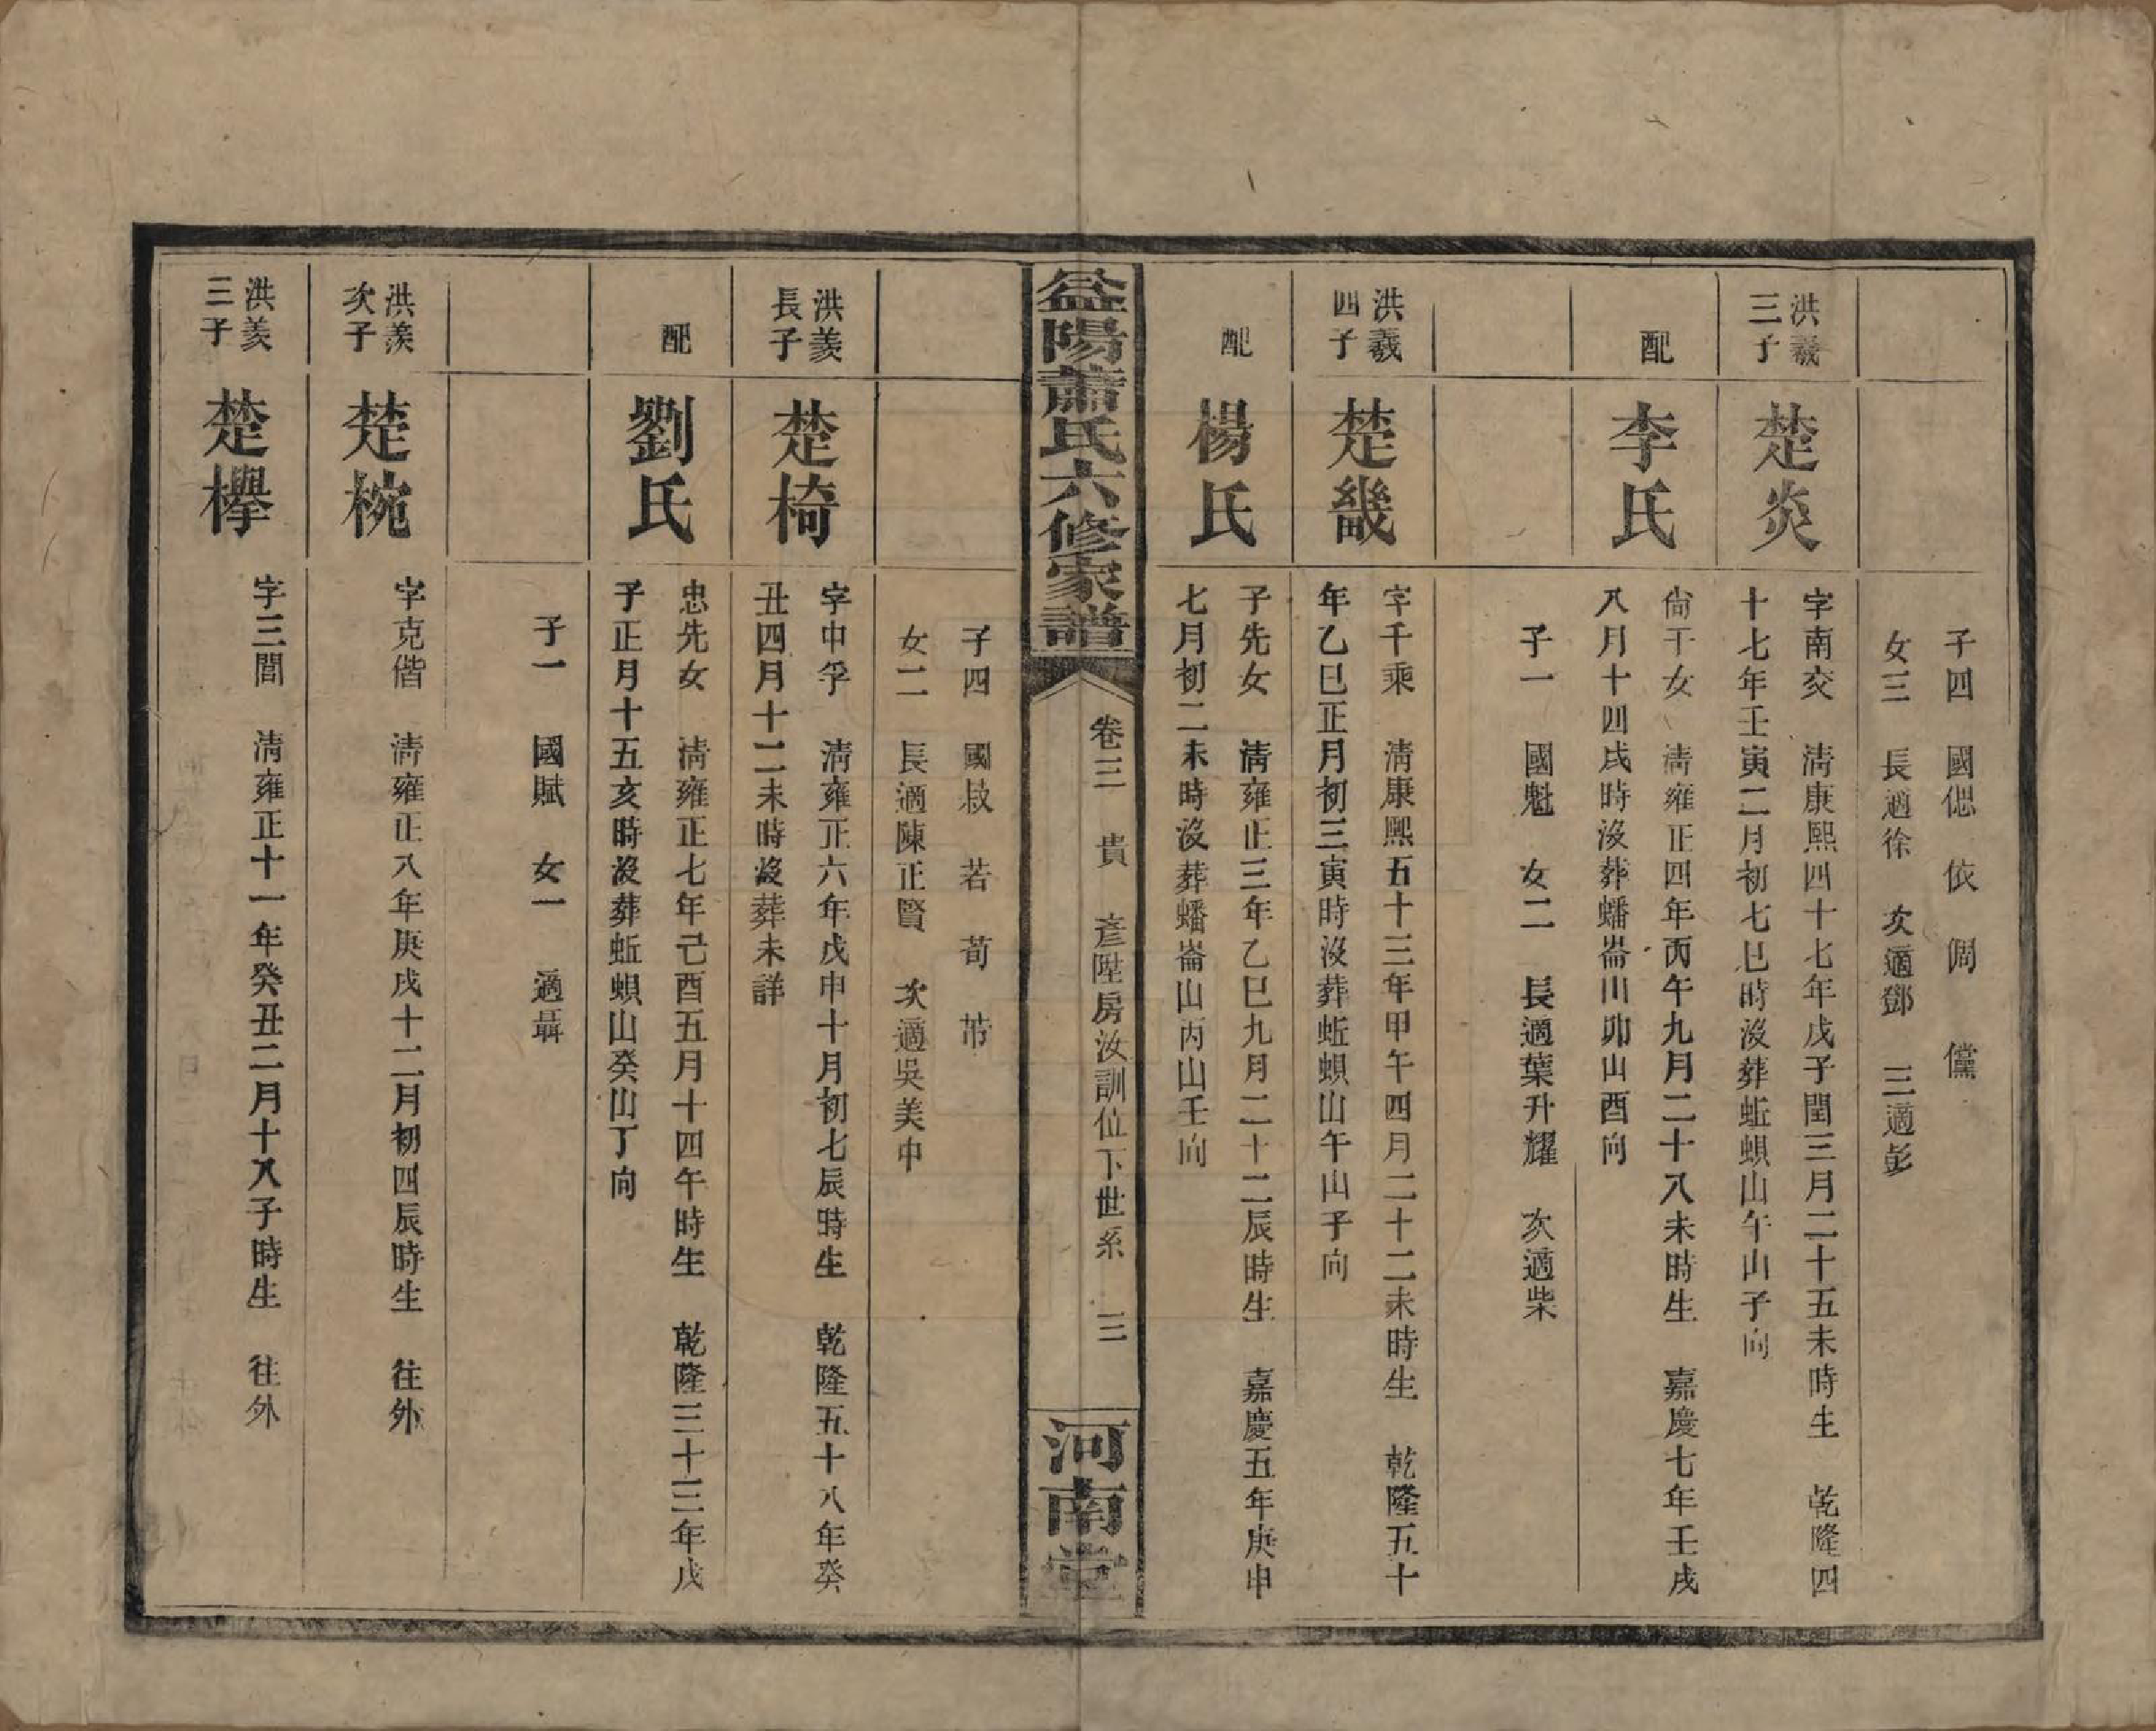 子四　國偲　依　倜　儻
女三　長適徐　次適鄧　三適彭
洪羲
三子
楚炎
字南交　清康熙四十七年戊子閏三月二十五未時生　乾隆四
十七年壬寅二月初七巳時沒葬蚯蟥山午山子向
配
李氏
尙干女　清雍正四年丙午九月二十八未時生　嘉慶七年壬戌
八月十四戌時沒葬蟠崙山卯山酉向
子一　國魁　女二　長適葉升耀　次適柴
洪羲
四子
楚畿
字千乘　清康熙五十三年甲午四月二十二未時生　乾隆五十
年乙巳正月初三寅時沒葬蚯蟥山午山子向
配
楊氏
子先女　清雍正三年乙巳九月二十二辰時生　嘉慶五年庚申
七月初二未時沒葬蟠崙山丙山壬向
益陽蕭氏六修家譜
卷三　貴　彥陞房汝訓位下世系　三
河南堂
子四　國菽　若　荀　芾
女二　長適陳正賢　次適吳美中
洪羨
長子
楚椅
字中孚　清雍正六年戊申十月初七辰時生　乾隆五十八年癸
丑四月十二未時沒葬未詳
配
劉氏
忠先女　清雍正七年己酉五月十四午時生　乾隆三十三年戊
子正月十五亥時沒葬蚯蟥山癸山丁向
子一　國賦　女一　適聶
洪羨
次子
楚椀
字克偕　清雍正八年庚戌十二月初四辰時生　往外
洪羨
三子
楚櫸
字三閭　清雍正十一年癸丑二月十八子時生　往外